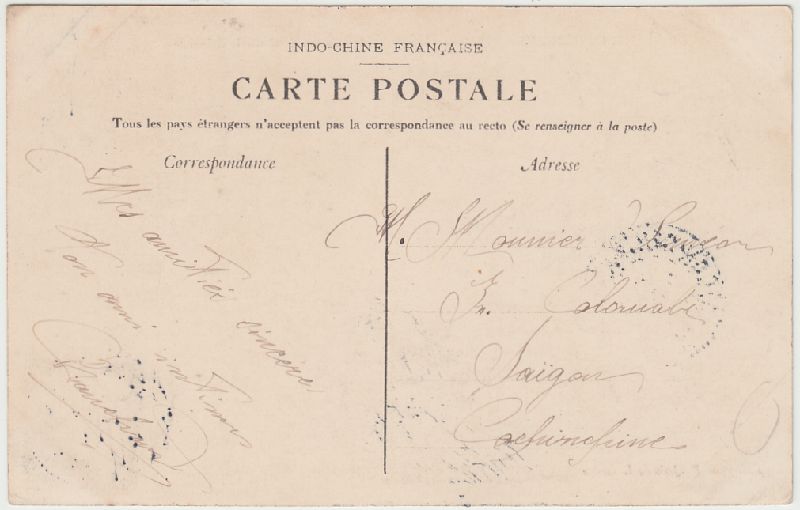 INDO-CHINE FRANÇAISE
CARTE POSTALE
Tous les pays étrangers n'acceptent pas la correspondance au recto (Se renseigner à la poste)
Correspondance
Mes amitiés sincères
Ton ami intime
Adresse
M. Mounier
Saïgon
Cochinchine